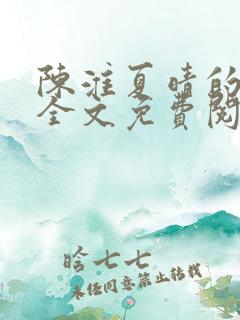 陳淮夏晴的
全文免費閱
晗七七
未经同意禁止转载